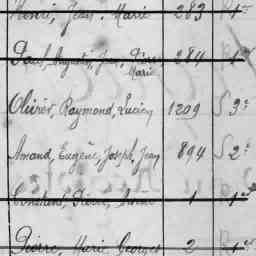 Henri, Jean. Marie 283 R 1er
Paul, Auguste, Jean, Pierre Marie 284 R 1er
Olivier, Raymond, Lucien 1209 S 3e
Amand, Eugène, Joseph, Jean 894 S 2e
Constant, Pierre, 1 1er
Pierre, Marie Georges 2 R 1er